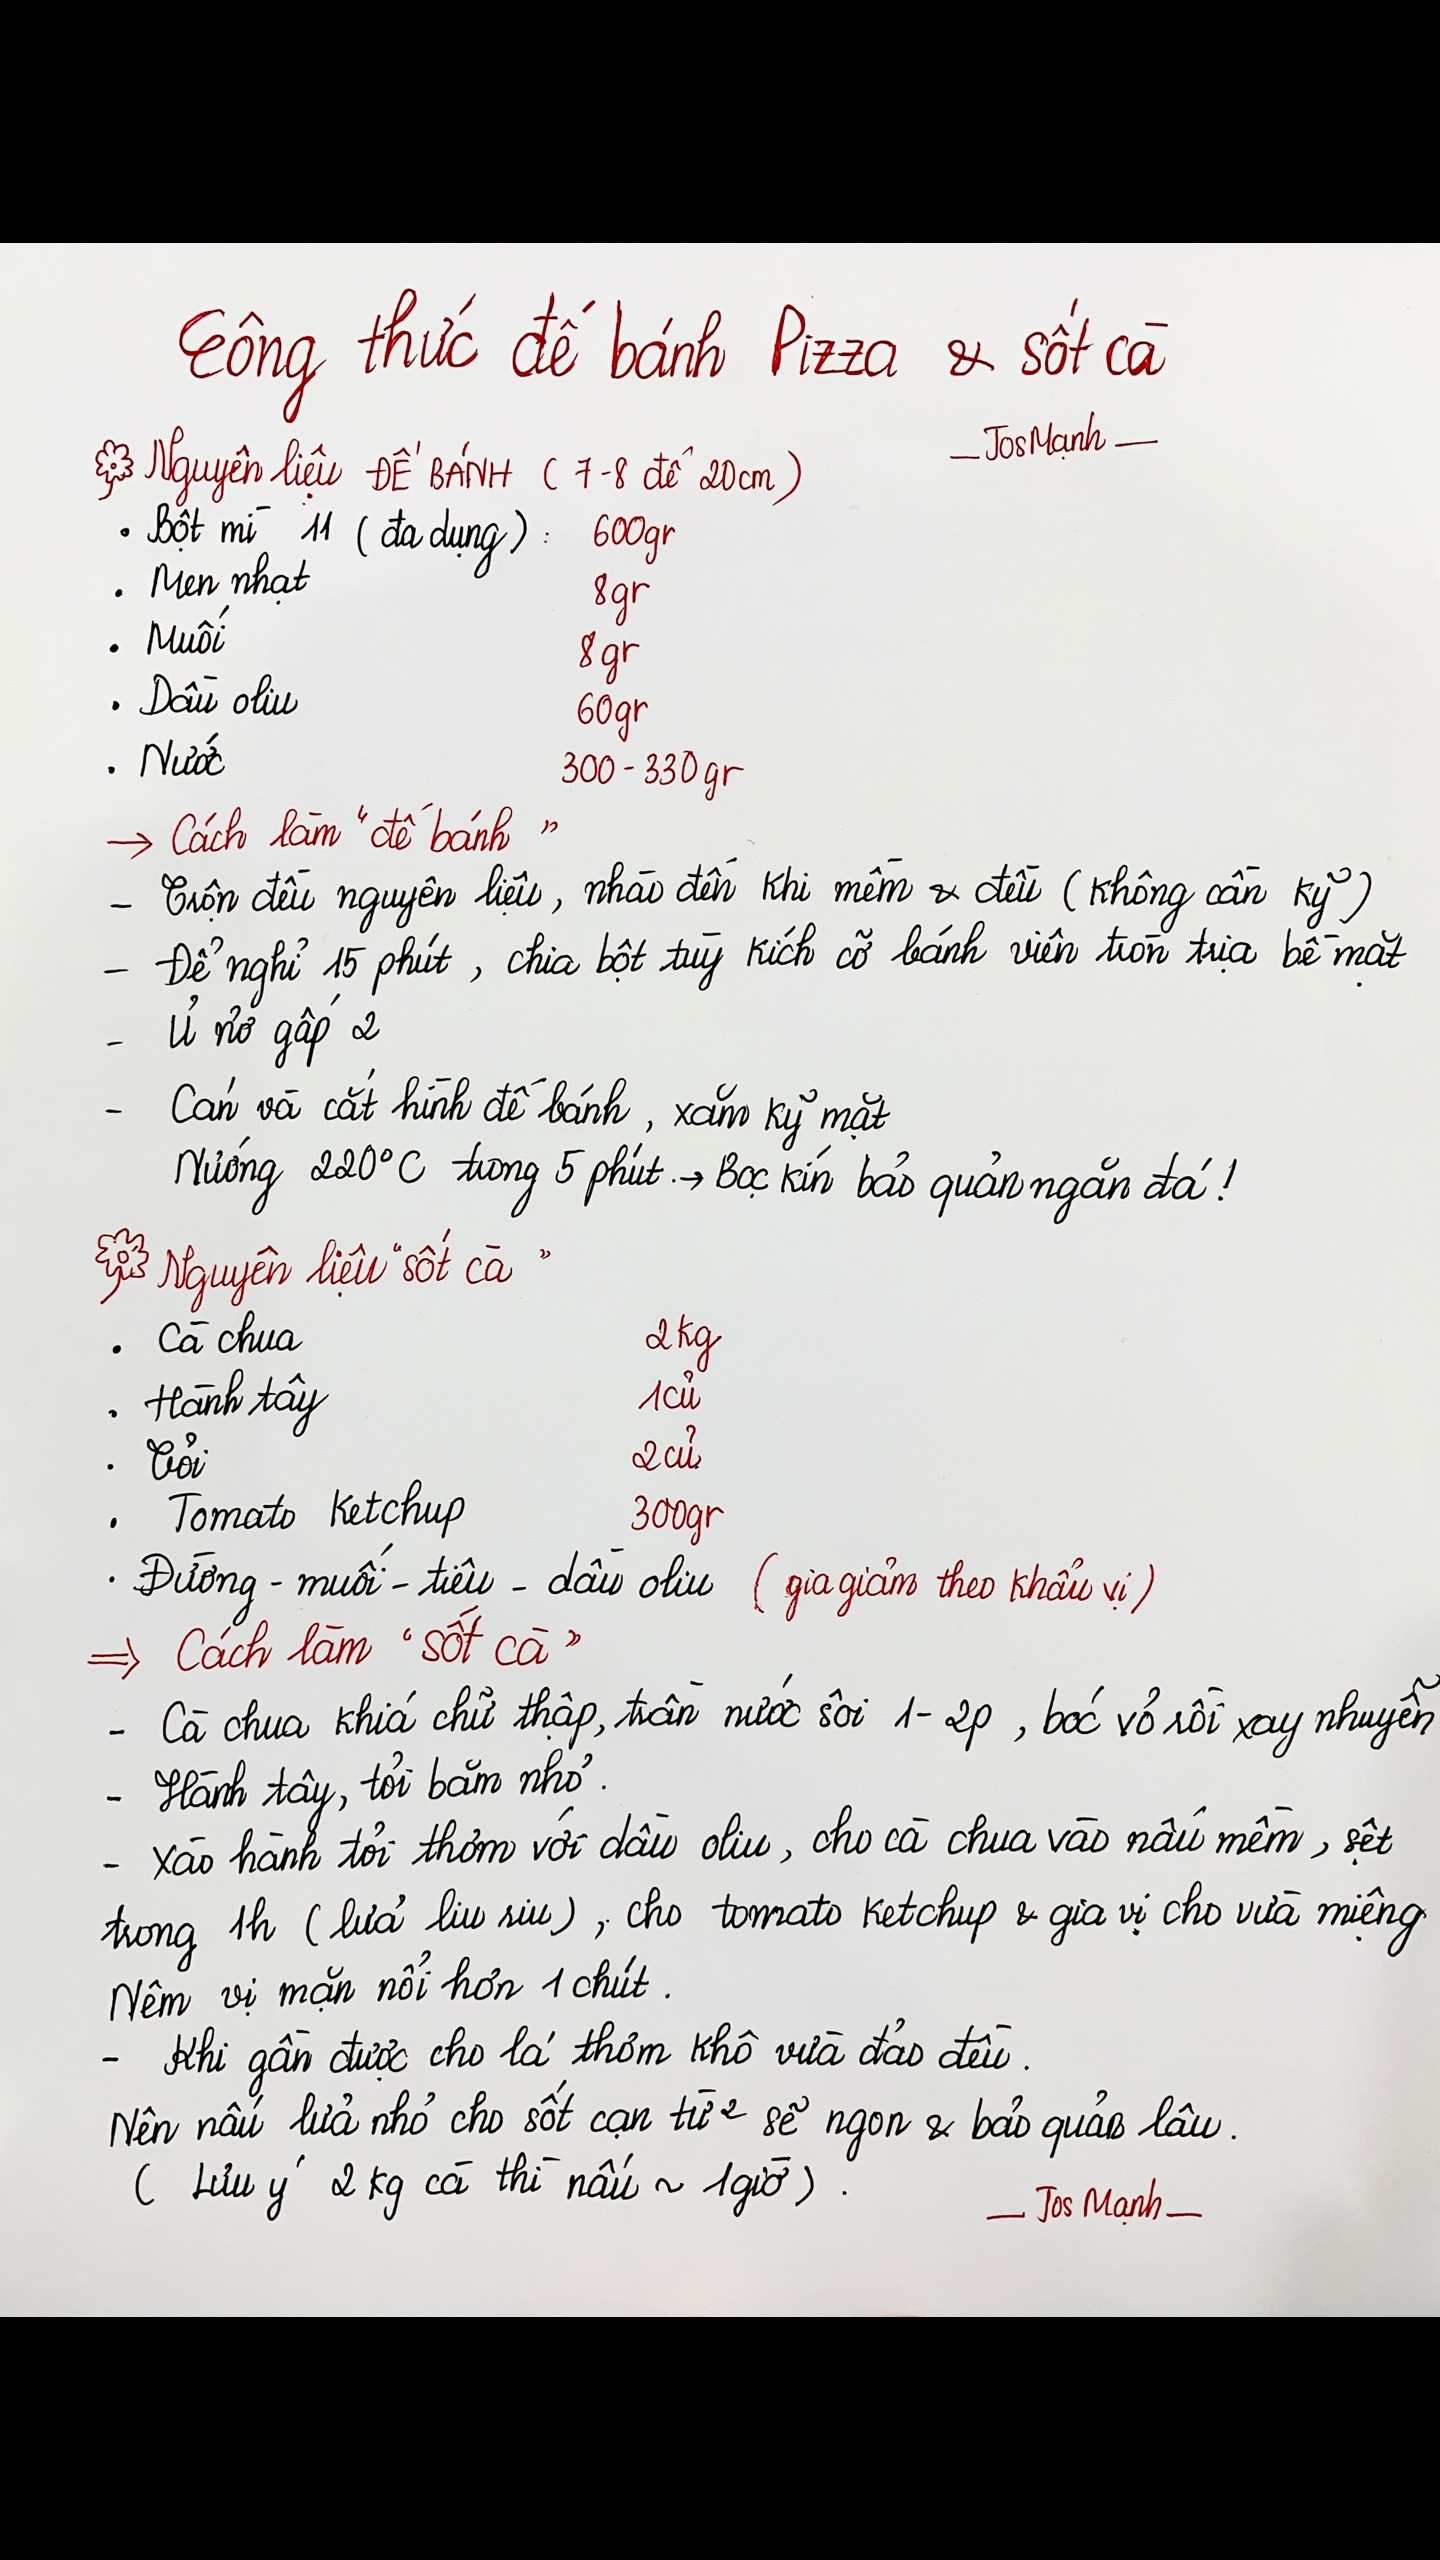 Công thức đế bánh Pizza & sốt cà
_ JosMạnh _
Nguyên liệu ĐẾ BÁNH ( 7-8 đế 20cm )
• Bột mì 11 ( đa dụng ) : 600gr
• Men nhạt 8gr
• Muối 8gr
• Dầu oliu 60gr
• Nước 300-330gr
→ Cách làm "đế bánh"
- Trộn đều nguyên liệu, nhào đến khi mềm & đều ( không cần kỹ )
- Để nghỉ 15 phút, chia bột tuỳ kích cỡ bánh viên tròn trịa bề mặt
- Ủ nở gấp 2
- Cán và cắt hình đế bánh, xăm kỹ mặt
Nướng 220°C trong 5 phút. → Bọc kín bảo quản ngăn đá !
Nguyên liệu "sốt cà"
• Cà chua 2kg
• Hành tây 1củ
• Tỏi 2củ
• Tomato Ketchup 300gr
• Đường - muối - tiêu - dầu oliu ( gia giảm theo khẩu vị )
⇒ Cách làm "sốt cà"
- Cà chua khía chữ thập, trần nước sôi 1-2p, bóc vỏ rồi xay nhuyễn
- Hành tây, tỏi băm nhỏ.
- Xào hành tỏi thơm với dầu oliu, cho cà chua vào nấu mềm, sệt
trong 1h ( lửa liu riu ), cho tomato ketchup & gia vị cho vừa miệng
Nêm vị mặn nổi hơn 1 chút.
- Khi gần được cho lá thơm khô vừa đảo đều.
Nên nấu lửa nhỏ cho sốt cạn từ² sẽ ngon & bảo quản lâu.
( Lưu ý 2kg cà thì nấu ~ 1giờ ).
_ Jos Mạnh _